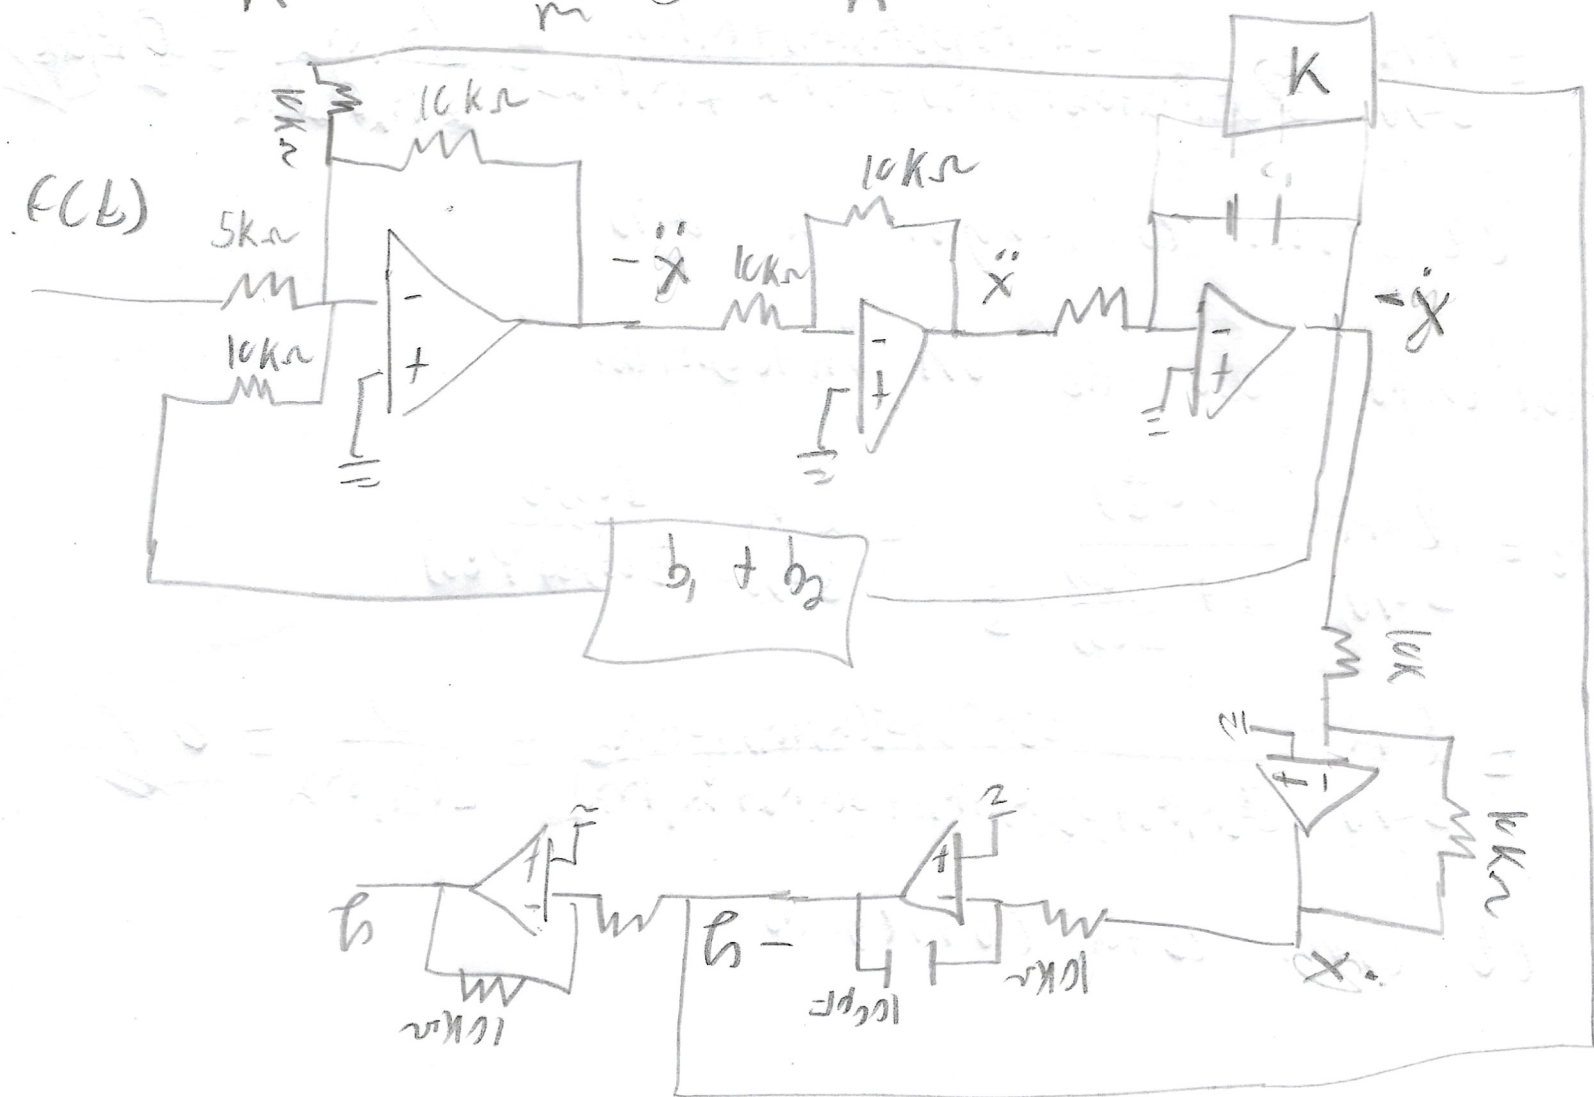 m
K
10kΩ
10kΩ
f(t)
5kΩ
10kΩ
-
+
- ẍ
10kΩ
10kΩ
-
+
ẍ
C₁
-
+
- ẋ
b₁ + b₂
10K
+ -
10kΩ
ẋ
10kΩ
+
-
100µF
- y
+
-
10kΩ
y